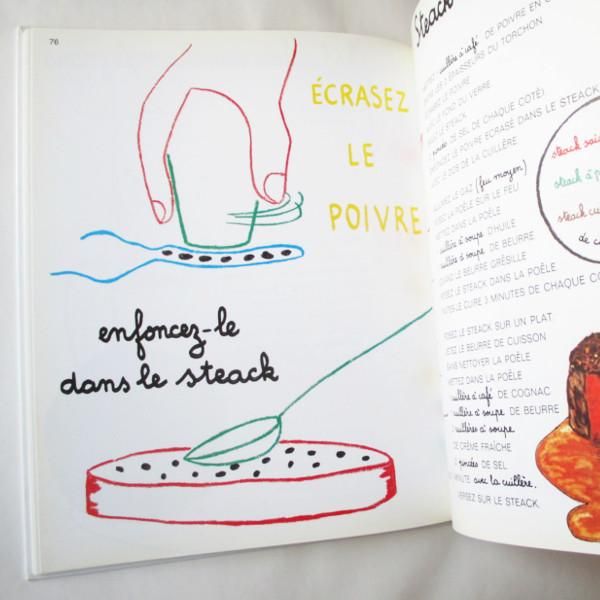 76
ÉCRASEZ
LE
POIVRE
enfoncez-le
dans le steack
Steack
cuillère à café DE POIVRE EN
ÉPAISSEURS DU TORCHON
LE POIVRE
FOND DU VERRE
LE STEACK
DE SEL DE CHAQUE CÔTÉ)
LE POIVRE ÉCRASÉ DANS LE STEACK
LE DOS DE LA CUILLÈRE
LE GAZ (feu moyen)
LA POÊLE SUR LE FEU
DANS LA POÊLE
cuillère à soupe D'HUILE
cuillère à soupe DE BEURRE
LE BEURRE GRÉSILLE
LE STEACK DANS LA POÊLE
LE CUIRE 3 MINUTES DE CHAQUE
LE STEACK SUR UN PLAT
LE BEURRE DE CUISSON
SANS NETTOYER LA POÊLE
METTEZ DANS LA POÊLE
cuillère à café DE COGNAC
cuillère à soupe DE BEURRE
cuillères à soupe
DE CRÈME FRAÎCHE
pincées DE SEL
MINUTE avec la cuillère.
VERSEZ SUR LE STEACK
steack
steack à
steack
de